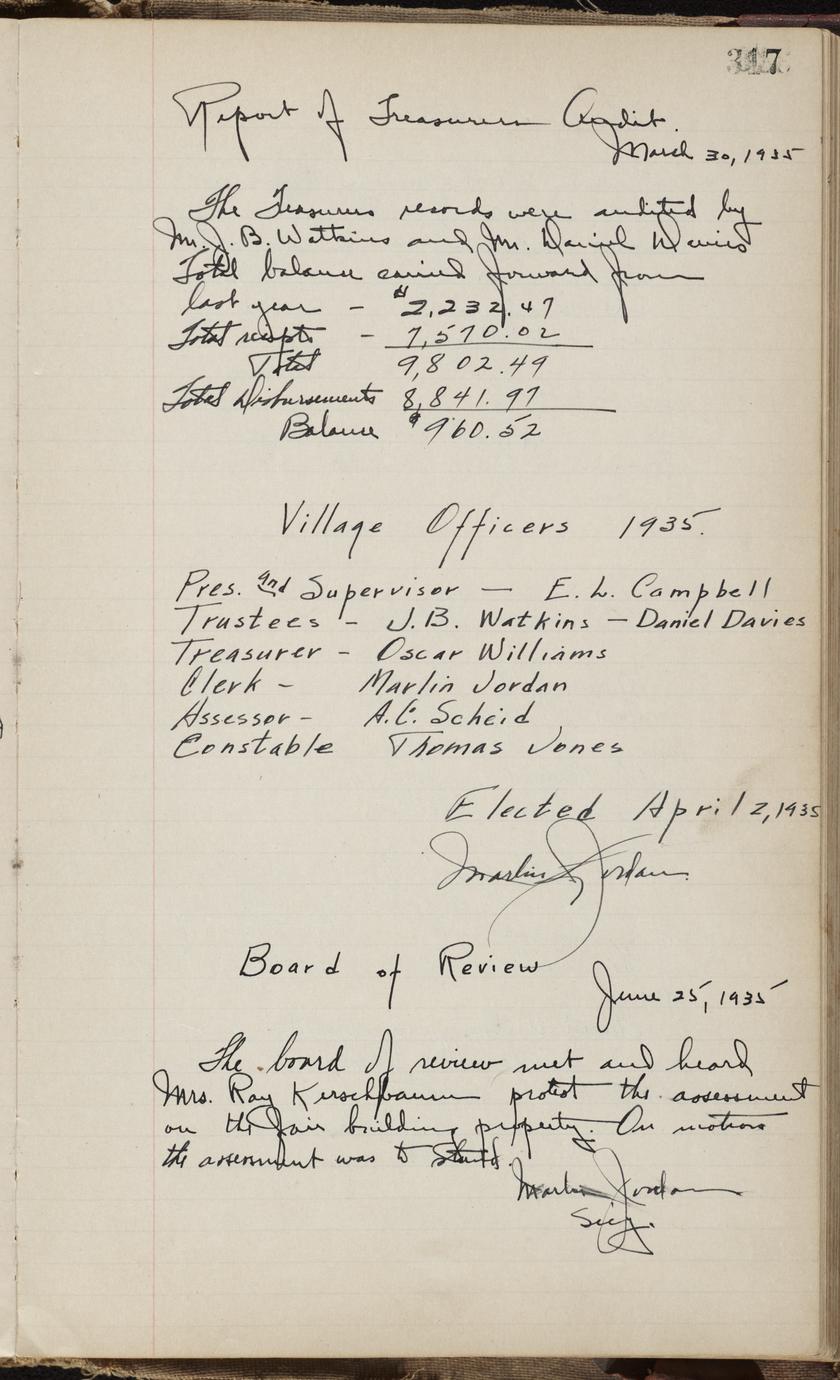 317
Report of Treasurers Audit.
March 30, 1935
The Treasurers records were audited by
Mr. J. B. Watkins and Mr. Daniel Davies
Total balance carried forward from
last year - $2,232.47
Total receipts - 7,570.02
Total 9,802.49
Total Disbursements 8,841.97
Balance $960.52
Village Officers 1935.
Pres. and Supervisor — E. L. Campbell
Trustees - J.B. Watkins — Daniel Davies
Treasurer - Oscar Williams
Clerk - Marlin Jordan
Assessor - A.C. Scheid
Constable Thomas Jones
Elected April 2, 1935
Marlin Jordan.
Board of Review
June 25, 1935
The board of review met and heard
Mrs. Ray Kerschbaum protest the assessment
on the Fair building property. On motion
the assessment was to stand.
Marlin Jordan
Secy.